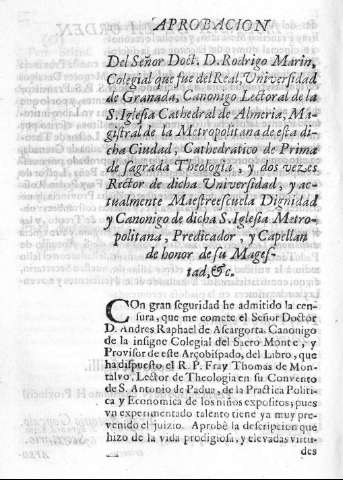 APROBACION
Del Señor Doct. D. Rodrigo Marin,
Colegial que fue del Real, Universidad
de Granada, Canonigo Lectoral de la
S. Iglesia Cathedral de Almeria, Ma-
gistral de la Metropolitana de esta di-
cha Ciudad, Cathedratico de Prima
de sagrada Theologia, y dos vezes
Rector de dicha Universidad, y ac-
tualmente Maestreescuela Dignidad
y Canonigo de dicha S. Iglesia Metro-
politana, Predicador, y Capellan
de honor de su Mages-
tad, &c.
COn gran seguridad he admitido la cen-
sura, que me comete el Señor Doctor
D. Andres Raphael de Ascargorta, Canonigo
de la insigne Colegial del Sacro Monte, y
Provisor de este Arçobispado, del Libro, que
ha dispuesto el R. P. Fray Thomas de Mon-
talvo, Lector de Theologia en su Convento
de S. Antonio de Padua, de la Practica Politi-
ca y Economica de los niños expositos; pues
su experimentado talento tiene ya muy pre-
venido el juizio. Aprobè la descripcion que
hizo de la vida prodigiosa, y elevadas virtu-
des